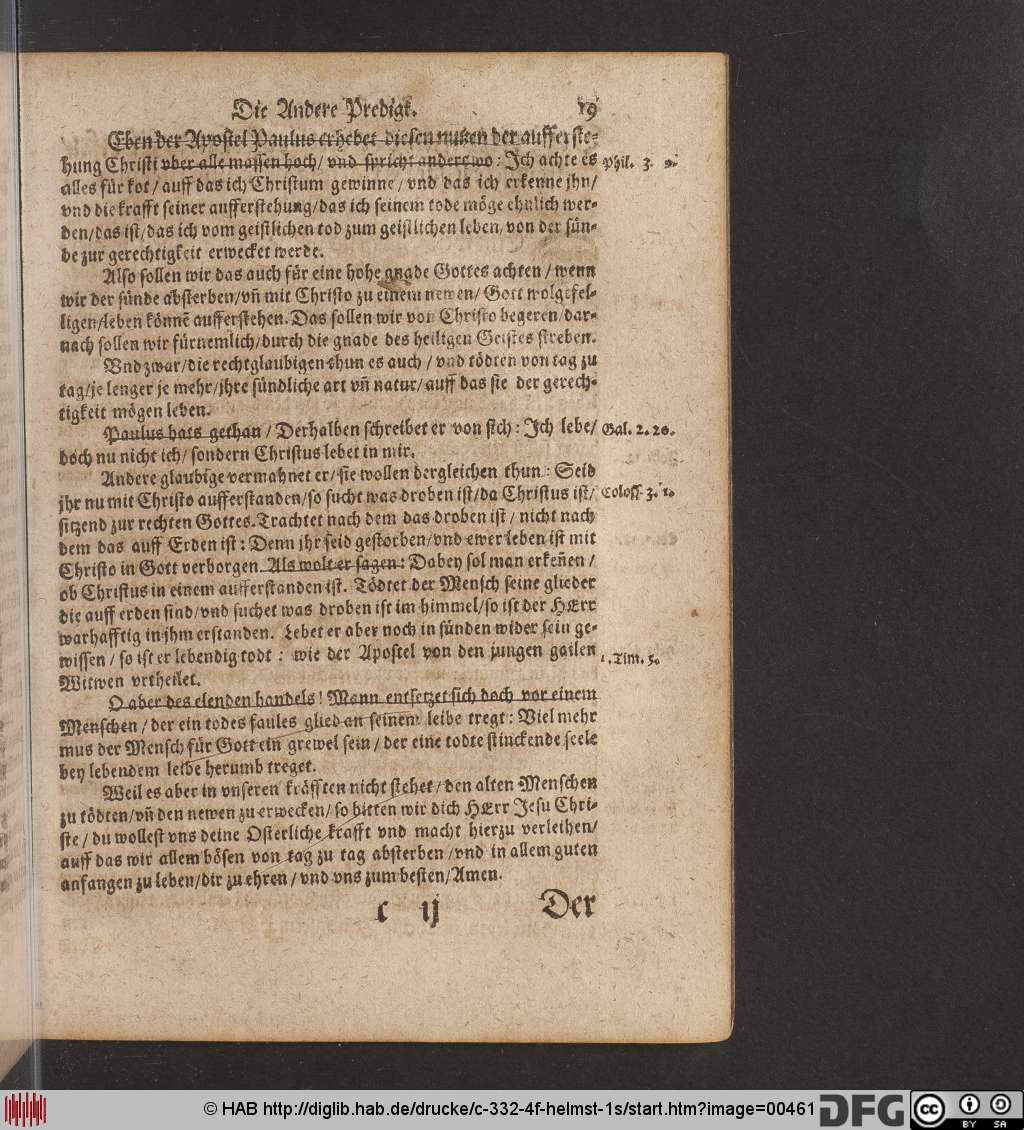 Die Andere Predigt. 19
Eben der Apostel Paulus erhebet diesen nutzen der aufferste-
hung Christi vber alle massen hoch/ vnd spricht anderswo: Ich achte es Phil. 3. 9.
alles für kot/ auff das ich Christum gewinne/ vnd das ich erkenne jhn/
vnd die krafft seiner aufferstehung/das ich seinem tode möge ehnlich wer-
den/das ist/das ich vom geistlichen tod zum geistlichen leben/von der sün-
de zur gerechtigkeit erwecket werde.
Also sollen wir das auch für eine hohe gnade Gottes achten/ wenn
wir der sünde absterben/vñ mit Christo zu einem newen/ Gott wolgefel-
ligen/leben könnẽ aufferstehen. Das sollen wir von Christo begeren/dar-
nach sollen wir fürnemlich/durch die gnade des heiligen Geistes streben.
Vnd zwar/die rechtglaubigen thun es auch/ vnd tödten von tag zu
tag/je lenger je mehr/jhre sündliche art vñ natur/auff das sie der gerech-
tigkeit mögen leben.
Paulus hats gethan/ Derhalben schreibet er von sich: Ich lebe/ Gal. 2. 20.
doch nu nicht ich/ sondern Christus lebet in mir.
Andere glaubige vermahnet er/sie wollen dergleichen thun: Seid
jhr nu mit Christo aufferstanden/so sucht was droben ist/da Christus ist/ Coloss. 3. 1.
sitzend zur rechten Gottes. Trachtet nach dem das droben ist/ nicht nach
dem das auff Erden ist: Denn jhr seid gestorben/vnd ewer leben ist mit
Christo in Gott verborgen. Als wolt er sagen: Dabey sol man erkeñen/
ob Christus in einem aufferstanden ist. Tödtet der Mensch seine glieder
die auff erden sind/vnd suchet was droben ist im himmel/so ist der HErr
warhafftig in jhm erstanden. Lebet er aber noch in sünden wider sein ge-
wissen/ so ist er lebendig todt: wie der Apostel von den jungen gailen 1. Tim. 5.
Witwen vrtheilet.
O aber des elenden handels! Mann entsetzet sich doch vor einem
Menschen/ der ein todes faules glied an seinem leibe tregt: Viel mehr
mus der Mensch für Gott ein grewel sein/ der eine todte stinckende seele
bey lebendem leibe herumb treget.
Weil es aber in vnseren kräfften nicht stehet/ den alten Menschen
zu tödten/vñ den newen zu erwecken/ so bitten wir dich HErr Jesu Chri-
ste/ du wollest vns deine Osterliche krafft vnd macht hierzu verleihen/
auff das wir allem bösen von tag zu tag absterben/vnd in allem guten
anfangen zu leben/dir zu ehren/ vnd vns zum besten/Amen.
c ij Der
© HAB http://diglib.hab.de/drucke/c-332-4f-helmst-1s/start.htm?image=00461 DFG cc BY SA